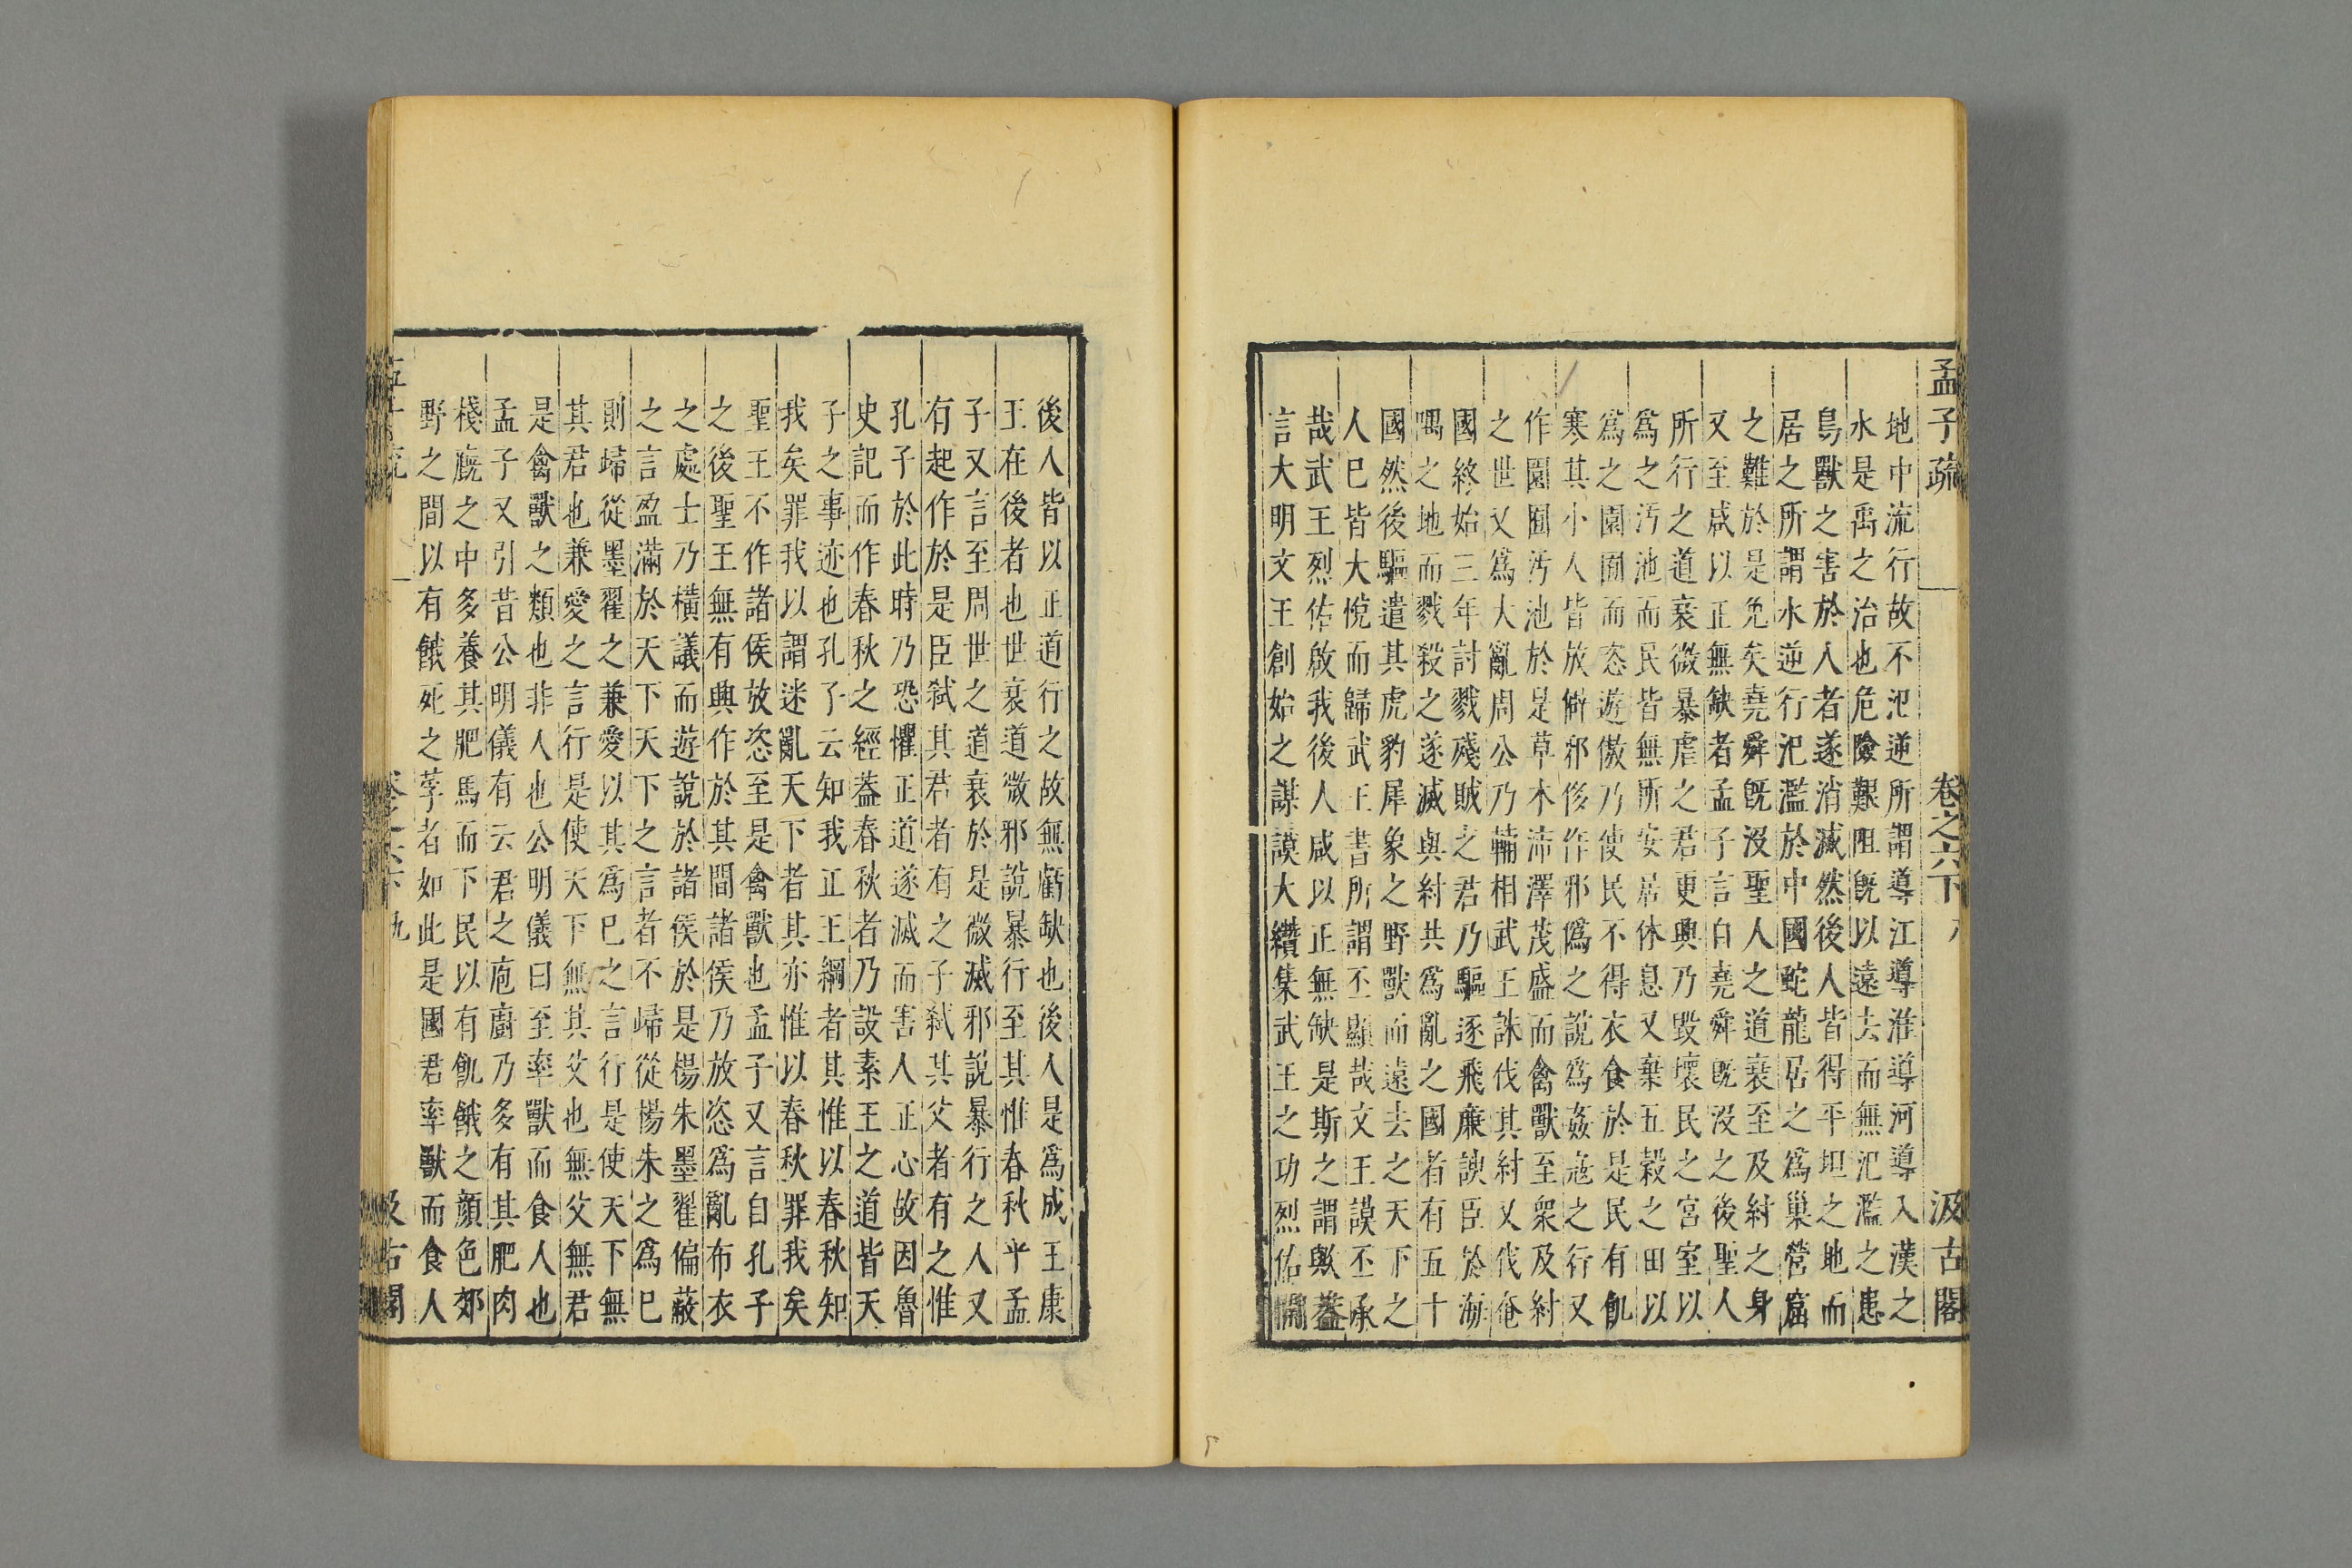 孟子疏 卷之六下 八 汲古閣
地中流行故不氾逆所謂導江導淮導河導入漢之
水是禹之治也危險艱阻旣以遠去而無氾濫之患
鳥獸之害於人者遂消滅然後人皆得平坦之地而
居之所謂水逆行氾濫於中國蛇龍居之爲巢營窟
之難於是免矣堯舜旣没聖人之道衰至及紂之身
又至咸以正無缺者孟子言自堯舜旣没之後聖人
所行之道衰微暴虐之君更興乃毀壞民之宮室以
爲之汚池而民皆無所安居休息又棄五穀之田以
爲之園囿而恣遊傲乃使民不得衣食於是民有飢
寒其小人皆放僻邪侈作邪僞之說爲姦宼之行又
作園囿汚池於是草木沛澤茂盛而禽獸至衆及紂
之世又爲大亂周公乃輔相武王誅伐其紂又伐奄
國終始三年討戮殘賊之君乃驅逐飛廉諛臣於海
隅之地而戮殺之遂滅與紂共爲亂之國者有五十
國然後驅遣其虎豹犀象之野獸而遠去之天下之
人已皆大悅而歸武王書所謂丕顯哉文王謨丕承
哉武王烈佑啟我後人咸以正無缺是斯之謂歟蓋
言大明文王創始之謀謨大纘集武王之功烈佑開
後人皆以正道行之故無虧缺也後人是爲成王康
王在後者也世衰道微邪說暴行至其惟春秋乎孟
子又言至周世之道衰於是微滅邪說暴行之人又
有起作於是臣弑其君者有之子弑其父者有之惟
孔子於此時乃恐懼正道遂滅而害人正心故因魯
史記而作春秋之經蓋春秋者乃設素王之道皆天
子之事迹也孔子云知我正王綱者其惟以春秋知
我矣罪我以謂迷亂天下者其亦惟以春秋罪我矣
聖王不作諸侯放恣至是禽獸也孟子又言自孔子
之後聖王無有興作於其間諸侯乃放恣爲亂布衣
之處士乃橫議而遊說於諸侯於是楊朱墨翟偏蔽
之言盈滿於天下天下之言者不歸從楊朱之爲已
則歸從墨翟之兼愛以其爲已之言行是使天下無
其君也兼愛之言行是使天下無其父也無父無君
是禽獸之類也非人也公明儀曰至率獸而食人也
孟子又引昔公明儀有云君之庖廚乃多有其肥肉
棧廐之中多養其肥馬而下民以有飢餓之顏色郊
野之間以有餓死之莩者如此是國君率獸而食人